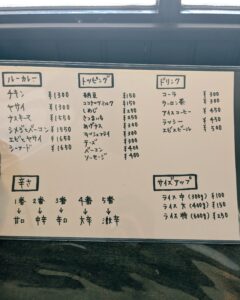 ルーカレー
チキン ¥1300
ヤサイ ¥1300
ウスキーマ ¥1550
シメジとベーコン ¥1550
エビとヤサイ ¥1650
シーフード ¥1650
トッピング
納豆 ¥150
ココナッツミルク ¥150
しめじ ¥250
さつまいも ¥250
チーズ ¥300
ベーコン ¥400
ソーセージ ¥400
ドリンク
コーラ ¥300
ウーロン茶 ¥300
アイスコーヒー ¥450
ラッシー ¥450
エビスビール ¥500
辛さ
1番 2番 3番 4番 5番
↓ ↓ ↓ ↓ ↓
甘口 中辛 辛口 大辛 激辛
サイズアップ
ライス 中 (300g) ¥100
ライス 大 (400g) ¥150